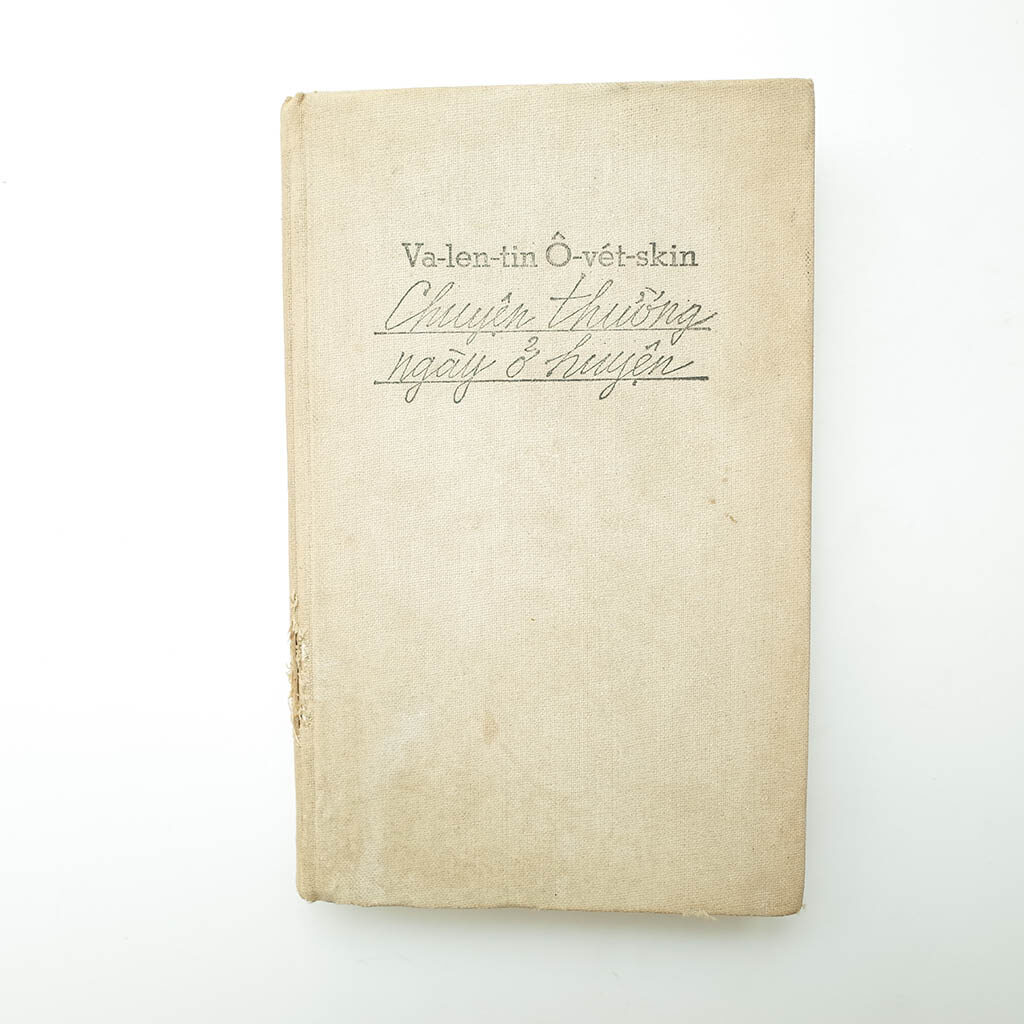 Va-len-tin Ô-vét-skin
Chuyện thường
ngày ở huyện